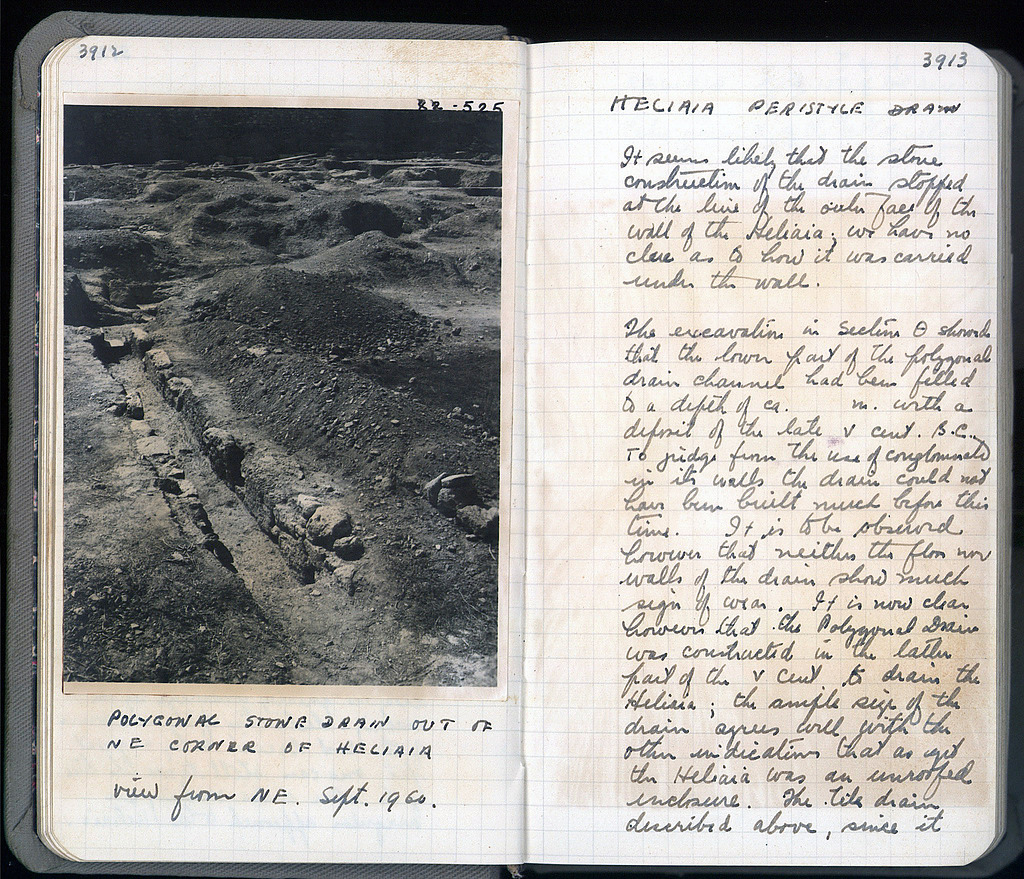 3912
88-525
POLYGONAL STONE DRAIN OUT OF
NE CORNER OF HELIAIA
view from NE. Sept. 1960.
3913
HELIAIA PERISTYLE DRAIN
It seems likely that the stone
construction of the drain stopped
at the line of the outer face of the
wall of the Heliaia; we have no
clue as to how it was carried
under the wall.
The excavation in Section Θ showed
that the lower part of the polygonal
drain channel had been filled
to a depth of ca. m. with a
deposit of the late V cent. B.C.
To judge from the use of conglomerate
in its walls the drain could not
have been built much before this
time. It is to be observed
however that neither the floor nor
walls of the drain show much
sign of wear. It is now clear
however that the Polygonal Drain
was constructed in the latter
part of the V cent to drain the
Heliaia; the ample size of the
drain agrees well with the
other indications that as yet
the Heliaia was an unroofed
enclosure. The tile drain
described above, since it